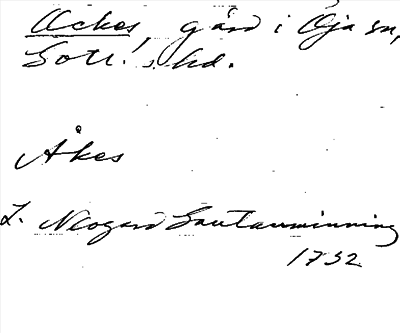 Ackes, gård i Öja sn,
Gotl.s.hd.
Åkes
L. Neogard Gautauminning
1732